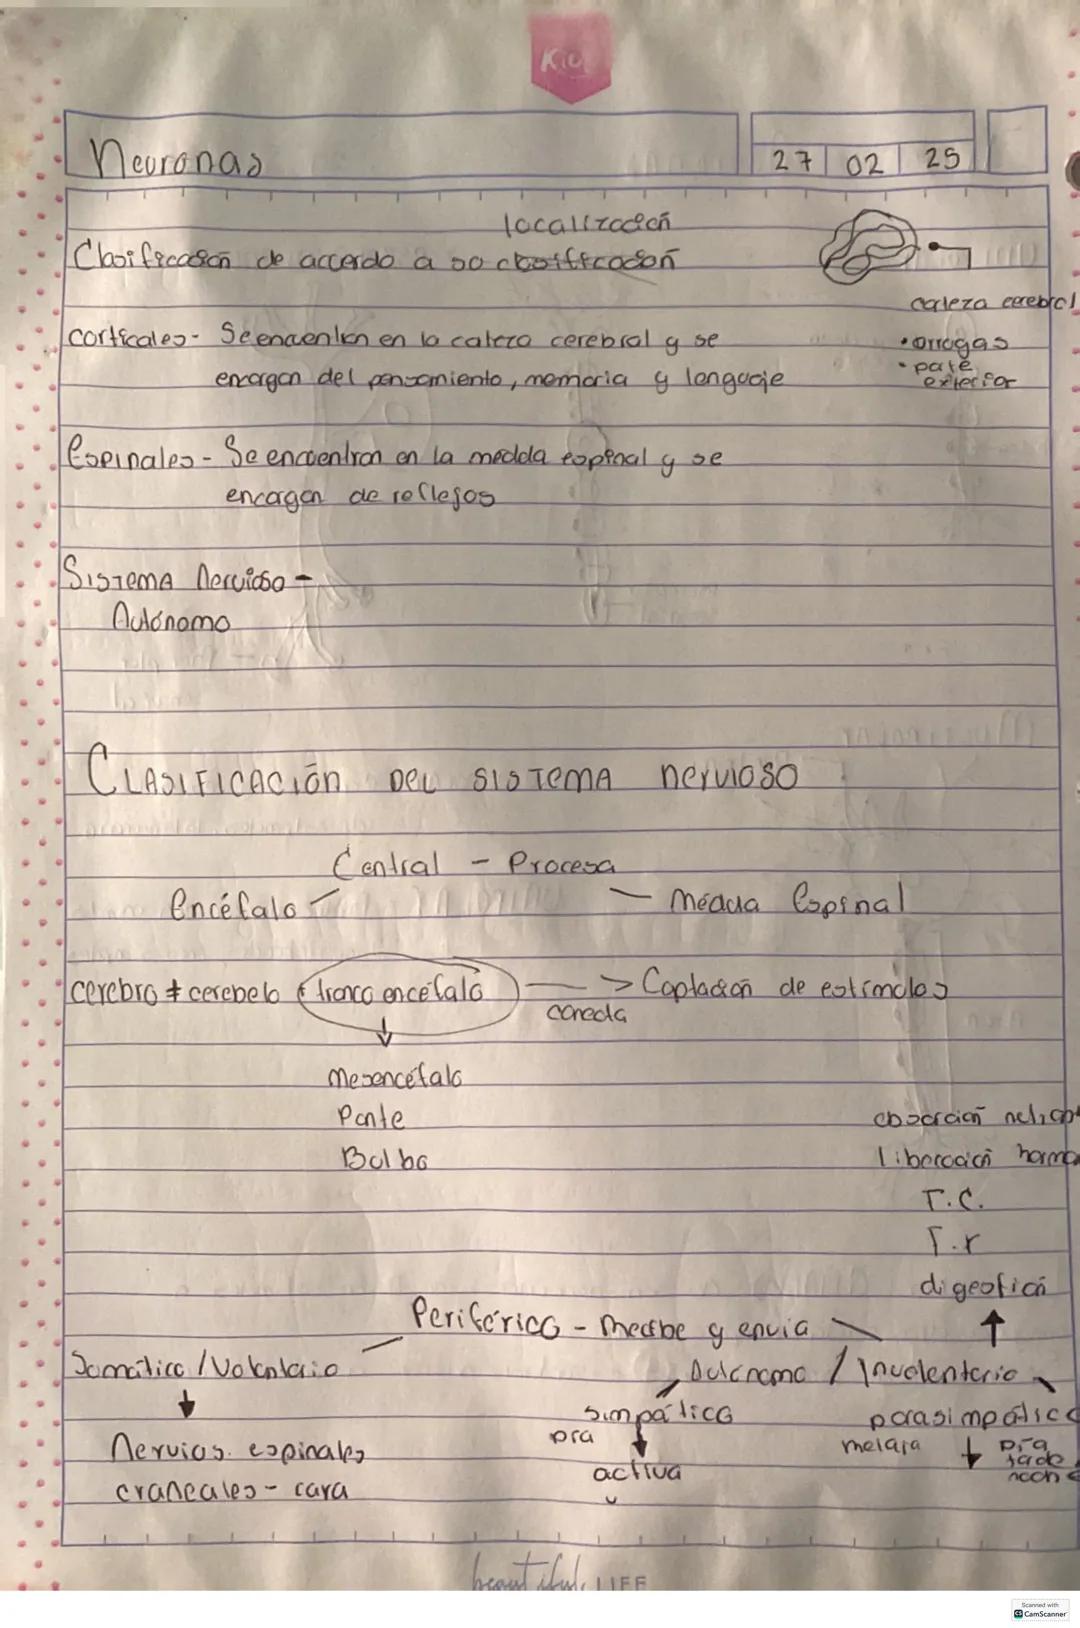 Kiut
Neuronas
27 02 25
localización
Clasificación de acuerdo a so clasificación
corteza cerebral
corticales- Se encuentran en la corteza cerebral y se
• arrugas
encargan del pensamiento, memoria y lenguaje
• parte
exterior
Espinales- Se encuentran en la medula espinal y se
encargan de reflejos
Sistema Nervioso -
Autónomo
CLASIFICACIÓN DEL SISTEMA nervioso
Central - Procesa
Encéfalo - Médula Espinal
cerebro + cerebelo + tronco encéfalo -> Captación de estímulos
conecta
Mesencéfalo
Ponte
Bulbo
absorción
liberación
T.C.
T.r
digestión
Periférico - Recibe y envía
Somático / Voluntario
Autónomo / Involuntario
simpático
parasimpático
Nervios. espinales
craneales - cara
activa
día
relaja
día
tarde
noche
beautiful LIFE
Scanned with
CS CamScanner